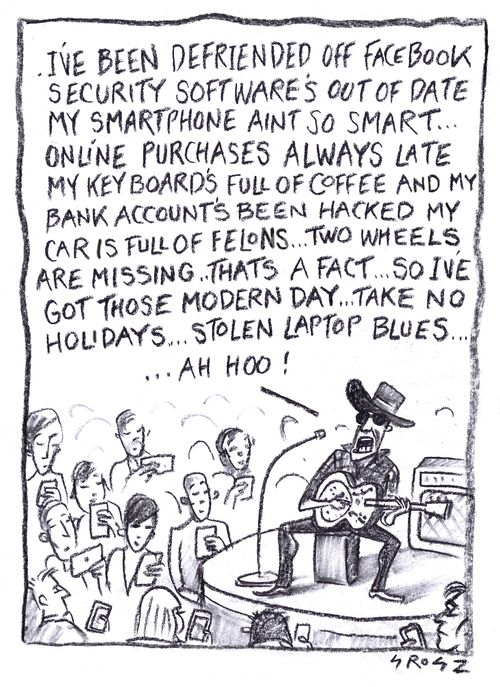 .I'VE BEEN DEFRIENDED OFF FACEBOOK
SECURITY SOFTWARE'S OUT OF DATE
MY SMARTPHONE AINT SO SMART...
ONLINE PURCHASES ALWAYS LATE
MY KEYBOARD'S FULL OF COFFEE AND MY
BANK ACCOUNT'S BEEN HACKED MY
CAR IS FULL OF FELONS...TWO WHEELS
ARE MISSING..THATS A FACT...SO I'VE
GOT THOSE MODERN DAY...TAKE NO
HOLIDAYS...STOLEN LAPTOP BLUES...
...AH HOO!
GROSZ